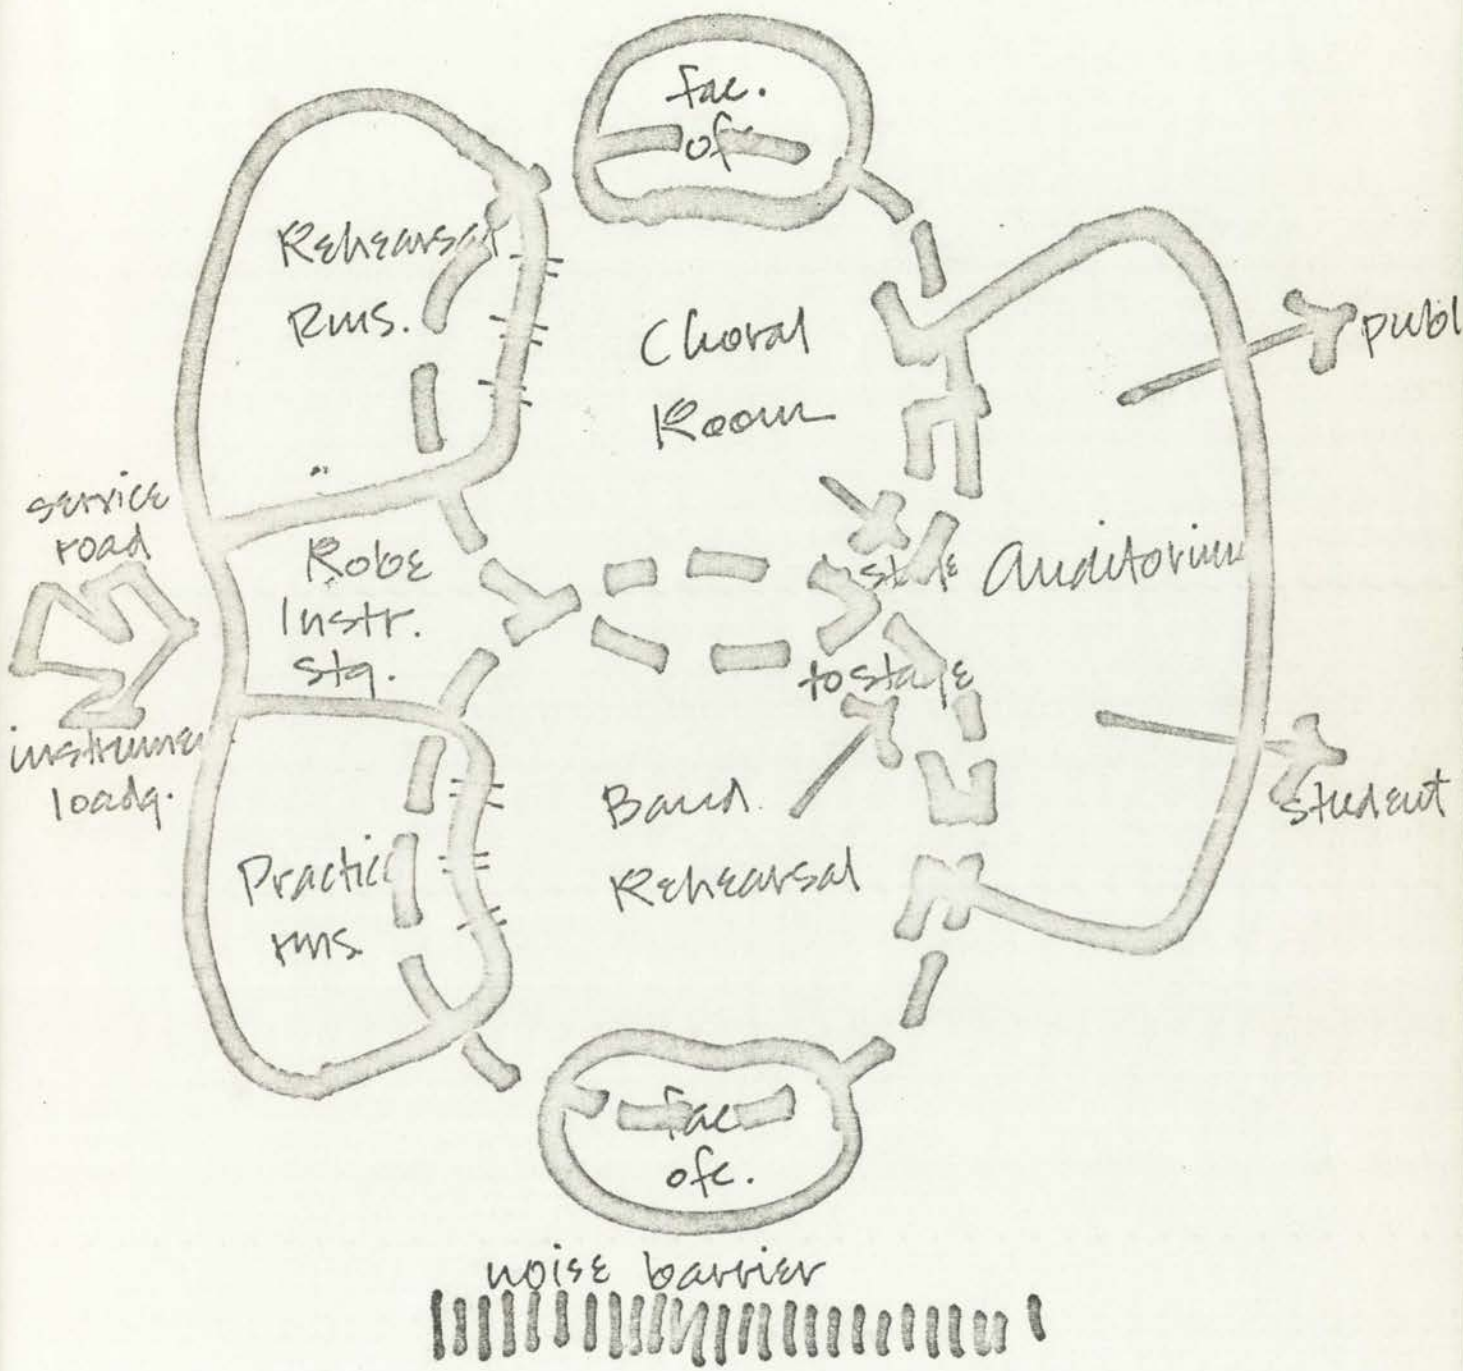 fac.
of
Rehearsal
Rms.
Choral
Room
publ
service
road
Robe
Instr.
stg.
Auditorium
to stage
instrume
loadg.
Band
Rehearsal
student
Practic
rms.
fac
ofc.
noise barrier